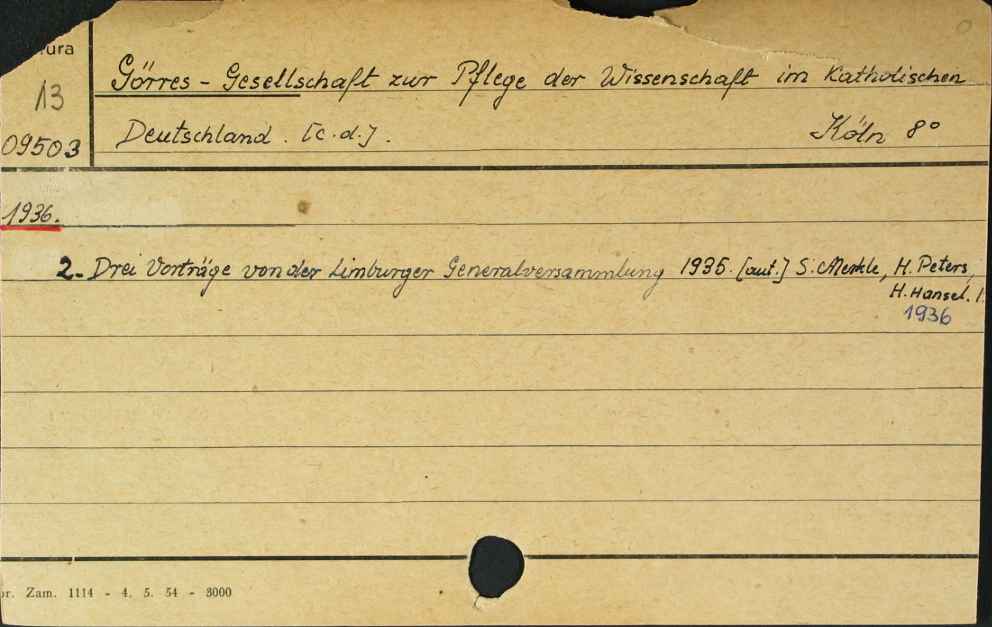 ura
13
09503
Görres - Gesellschaft zur Pflege der Wissenschaft im Katholischen
Deutschland. [c.d.]. Köln 8°
1936.
2. Drei Vorträge von der Limburger Generalversammlung 1935. [aut.] S. Merkle, H. Peters,
H. Hansel.
1936
or. Zam. 1114 - 4. 5. 54 - 3000